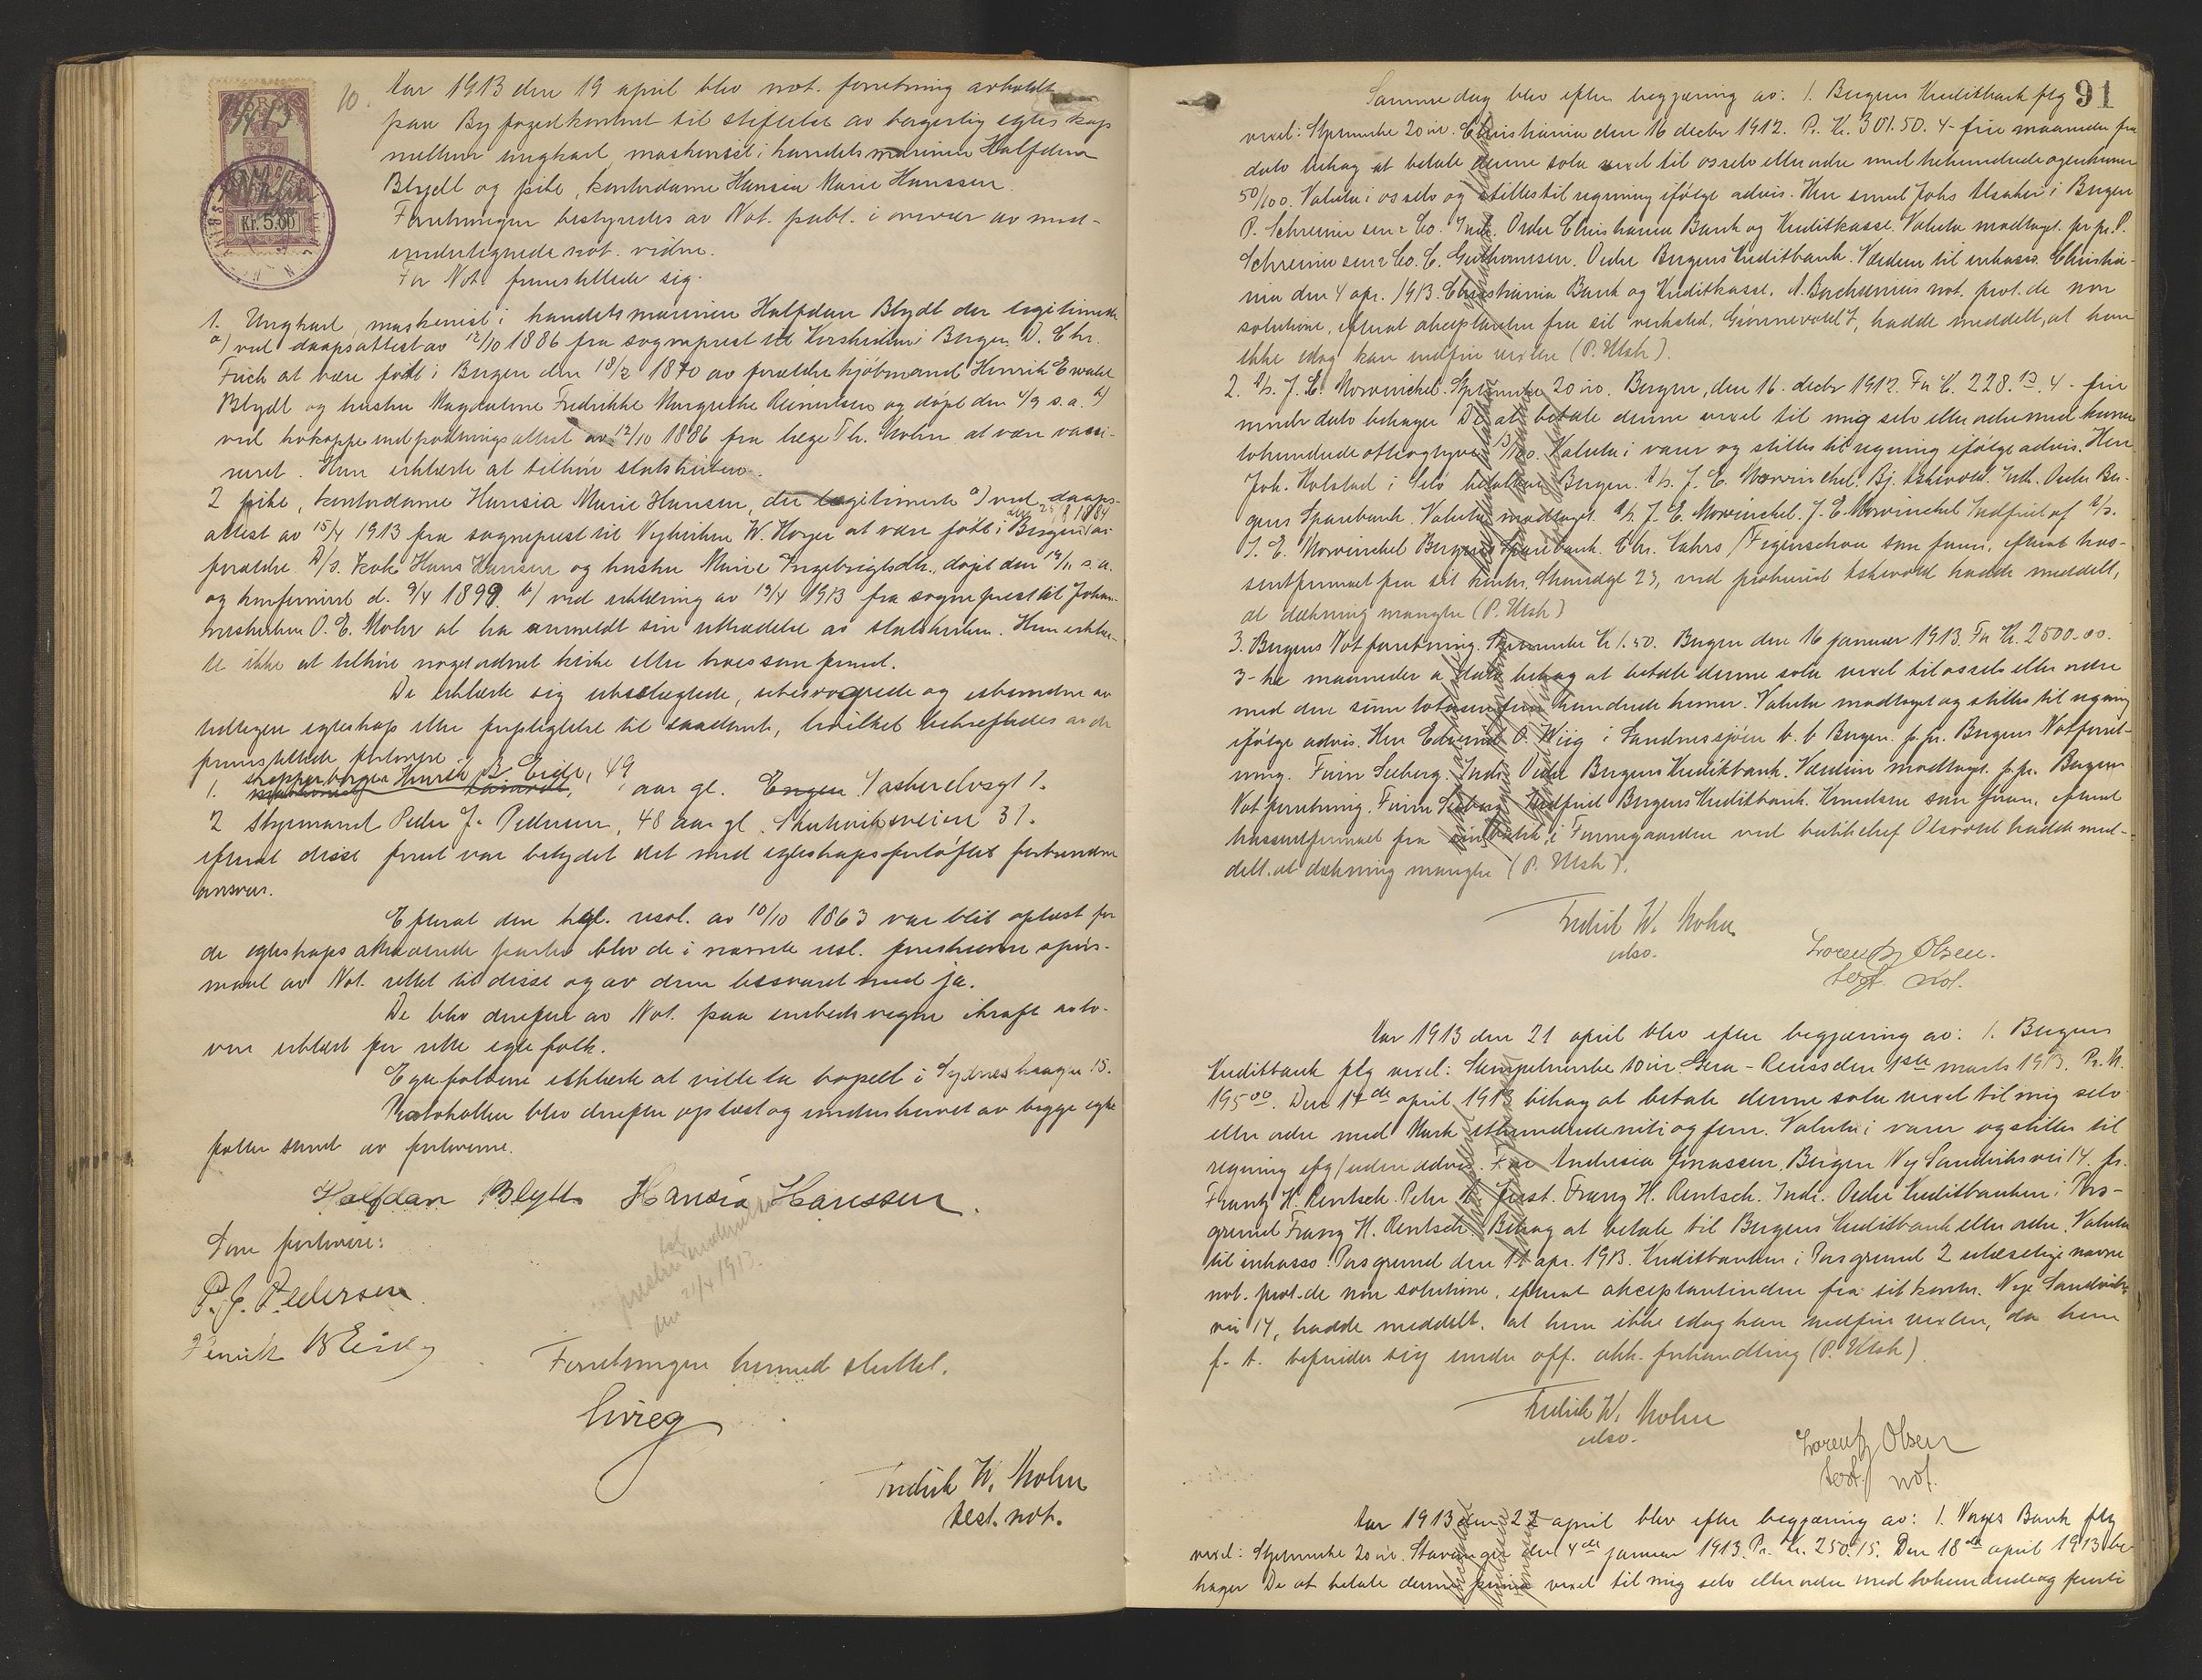 10.
Kr. 5.00
Aar 1913 den 19 april blev not. forretning avholdt
paa Byfogedkontoret til stiftelse av borgerlig egteskap
mellem ungkarl, maskinist i handelsmarinen Halfdan
Blydt og pike, kontordame Hansia Marie Hanssen.
Forretningen bestyredes av Not. publ. i overvær av med-
undertegnede not. vidne.
For Not. fremstillede sig.
1. Ungkarl, maskinist i handelsmarinen Halfdan Blydt der legitimerte
a) ved daapsattest av 12/10 1886 fra sogneprest til Korskirken i Bergen D. Chr.
Friich at være født i Bergen den 18/2 1870 av forældre kjøbmand Henrik Ewald
Blydt og hustru Magdalene Fredrikke Margrethe Reinertsen og døpt den 4/9 s. a. b)
ved kokoppeindpodningsattest av 12/10 1886 fra læge Th. Mohn at være vacci-
neret. Han erklærte at tilhøre statskirken.
2 pike, kontordame Hansia Marie Hansen, der legitimerte a) ved daaps-
attest av 15/4 1913 fra sogneprest til Nykirken W. Koren at være født i Bergen av
forældre D/s. kok Hans Hansen og hustru Marie Ingebrigtsdtr., døpt den 19/11 s. a.
og konfirmert d. 9/4 1899. b) ved erklæring av 19/4 1913 fra sogneprest til Johan-
neskirken O. E. Mohr at ha anmeldt sin uttrædelse av statskirken. Hun erklær-
te ikke at tilhøre noget ordnet kirke eller troessamfund.
De erklærte sig ubeslegtede, ubesvogrede og ubundne av
tidligere egteskap eller forpligtelse til saadant, hvilket bekræftedes av de
fremstillede forlovere
1. skopperborger Henrik B. Eide, 49 aar gl. Engen
2 Styrmand Peder J. Pedersen, 48 aar gl. Skuteviksveien 31.
efterat disse forut var betydet det med egteskapsforløftet forbundne
ansvar.
Efterat den kgl. resol. av 10/10 1863 var blit oplæst for
de egteskapsattraaende parter blev de i nævnte resl. foreskrevne spørs-
maal av Not. rettet til disse og av dem besvaret med ja.
De blev derefter av Not. paa embeds vegne ikraft av lo-
ven erklært for rette egtefolk.
Egtefolkene erklærte at ville ta bopæl i Sydneshaugen 15.
Protokollen blev derefter oplæst og underskrevet av begge egte-
fæller samt av forloverne.
Halfdan Blydt Hansia Hanssen.
Som forlovere:
P. J. Pedersen
Henrik B Eide
den 21/4 1913.
Forretningen hermed sluttet.
Fredrik W. Mohn
test. not.
91
Samme dag blev efter begjæring av: 1. Bergens Kreditbank flg
vexel: Stpemerke 20 ør. Christiania den 16 decbr 1912. Pr. Kr. 301.50. 4-fire maaneder fra
dato behag at betale denne sola vexel til os selv eller ordre med trehundredeogenkroner
50/100. Valuta i os selv og stilles til regning ifølge advis. Herr smed Johs Utaaker i Bergen
P. Schreiner sen & Co. Indr. Ordre Christiania Bank og Kreditkasse. Valuta modtaget pr. pr. P.
Schreiner sen & Co. C. Guthormsen. Ordre Bergens Kreditbank. Værdien til inkasso. Christia-
nia den 4 apr. 1913. Christiania Bank og Kreditkasse. not. prot. de non
solutione, efterat akceptanten fra sit verksted, Grønnevold 7, hadde meddelt, at han
ikke idag kan indfri vexlen (P. Utsk).
2. A/s. J. E. Mowinckel. Stpemerke 20 øre. Bergen, den 16. decbr 1912. For Kr. 228.13. 4 - fire
mndr dato behager De at betale denne vexel til mig selv eller ordre med kroner
tohundredeotteogtyve 13/100. Valuta i varer og stilles til regning ifølge advis. Herr
Joh. Kolstad i Selv betalbar Bergen. A/s. J. E. Mowinckel. Bj. Askevold. Indr. Ordre Ber-
gens Sparebank. Valuta modtaget. A/s. J. E. Mowinckel. J. E. Mowinckel Indfriet af A/s.
J. E. Mowinckel Bergens Sparebank. Chr. Lahrs / Fegenschou som frem, efterat hos-
sentfirmaet fra sit kontor, Strandgt 23, ved prokurist Askevold hadde meddelt,
at dækning mangler (P. Utsk)
3. Bergens Notforretning. Stpemerke Kr 1.50. Bergen den 16 januar 1913. For Kr. 2500.00.
3-tre maaneder a dato behag at betale denne sola vexel til os selv eller ordre
med den sum totusenfemhundrede kroner. Valuta modtaget og stilles til regning
ifølge advis. Herr Edvind O. Wiig i Sandnessjøen b. b Bergen. p. pr. Bergens Notforret-
ning. Finn Seeberg. Indr. Ordre Bergens Kreditbank. Værdien modtaget p. pr. Bergens
Notforretning. Finn Seeberg. Indfriet Bergens Kreditbank. Knudsen som frem, efterat
trassentfirmaet fra sin butik i Finnegaarden ved butikchef Olsvold hadde med-
delt at dækning mangler (P. Utsk).
Fredrik W. Mohn
edsv.
Lorentz Olsen.
test. not.
Aar 1913 den 21 april blev efter begjæring av: 1. Bergens
Kreditbank flg vexel: Stempelmerke 10 ør. Gera-Reuss den 1ste marts 1913. Pr. M.
195.00. Den 14de april 1913 behag at betale denne sola vexel til mig selv
eller ordre med Mark ethundredenitiogfem. Valuta i varer og stilles til
regning ifg/uden advis. Frøe Andresia Jonassen, Bergen Ny Sandviksvei 14. pr.
Frantz H. Rentsch. Peter H. Franz H. Rentsch. Indr. Ordre Kreditbanken i Pors-
grund Franz H. Rentsch. Behag at betale til Bergens Kreditbank eller ordre. Valuta
til inkasso. Porsgrund den 11 apr. 1913. Kreditbanken i Porsgrund 2 ulæselige navne
not. prot. de non solutione, efterat akceptantinden fra sit kontor. Nye Sandviks-
vei 14, hadde meddelt, at hun ikke idag kan indfri vexlen, da hun
f. t. befinder sig under off. akk. forhandling (P. Utsk).
Fredrik W. Mohn
edsv.
Lorentz Olsen
test. not.
Aar 1913 den 22 april blev efter begjæring av: 1. Norges Bank flg
vexel: Stpemerke 20 ør. Stavanger den 4de januar 1913. Pr. Kr. 250.15. Den 18de april 1913 be-
hager De at betale denne prima vexel til mig selv eller ordre med tohundredeogfemti